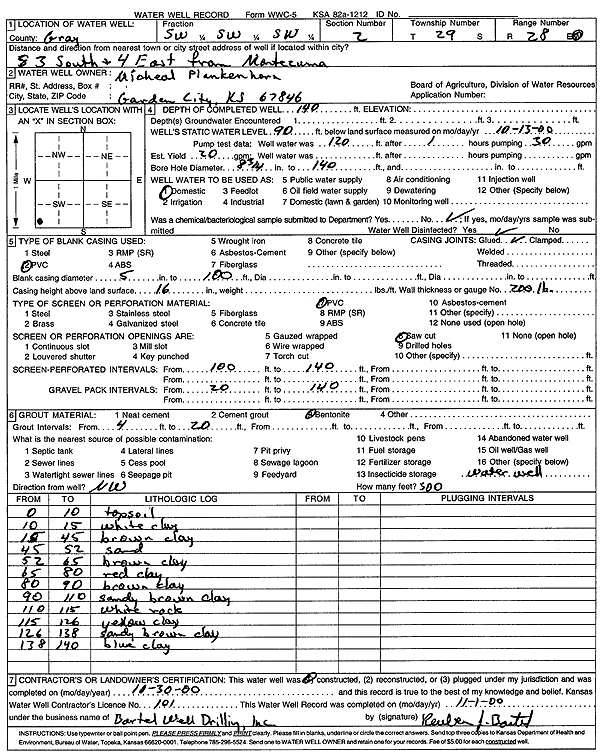 WATER WELL RECORD Form WWC-5 KSA 82a-1212 ID No.
1 LOCATION OF WATER WELL: Fraction Section Number Township Number Range Number
County: Gray SW ¼ SW ¼ SW ¼ 2 T 29 S R 28 E
Distance and direction from nearest town or city street address of well if located within city?
3 South + 4 East from Montezuma
2 WATER WELL OWNER: Micheal Plankenhorn
RR#, St. Address, Box # : Board of Agriculture, Division of Water Resources
City, State, ZIP Code : Garden City, KS 67846 Application Number:
3 LOCATE WELL'S LOCATION WITH AN "X" IN SECTION BOX:
N
NW NE
W E
SW SE
S
1 Mile
4 DEPTH OF COMPLETED WELL 140 ft. ELEVATION:
Depth(s) Groundwater Encountered 1. ft. 2. ft. 3. ft.
WELL'S STATIC WATER LEVEL 90 ft. below land surface measured on mo/day/yr 10-13-00
Pump test data: Well water was 120 ft. after 1 hours pumping 30 gpm
Est. Yield 20 gpm: Well water was ft. after hours pumping gpm
Bore Hole Diameter 8 3/4 in. to 140 ft., and in. to ft.
WELL WATER TO BE USED AS: 5 Public water supply 8 Air conditioning 11 Injection well
1 Domestic 3 Feedlot 6 Oil field water supply 9 Dewatering 12 Other (Specify below)
2 Irrigation 4 Industrial 7 Domestic (lawn & garden) 10 Monitoring well
Was a chemical/bacteriological sample submitted to Department? Yes No ✓; If yes, mo/day/yrs sample was submitted
Water Well Disinfected? Yes ✓ No
5 TYPE OF BLANK CASING USED: 5 Wrought iron 8 Concrete tile CASING JOINTS: Glued ✓ Clamped
1 Steel 3 RMP (SR) 6 Asbestos-Cement 9 Other (specify below) Welded
2 PVC 4 ABS 7 Fiberglass Threaded
Blank casing diameter 5 in. to 100 ft., Dia in. to ft., Dia in. to ft.
Casing height above land surface 16 in., weight lbs./ft. Wall thickness or gauge No. 200 lb.
TYPE OF SCREEN OR PERFORATION MATERIAL: 7 PVC 10 Asbestos-cement
1 Steel 3 Stainless steel 5 Fiberglass 8 RMP (SR) 11 Other (specify)
2 Brass 4 Galvanized steel 6 Concrete tile 9 ABS 12 None used (open hole)
SCREEN OR PERFORATION OPENINGS ARE: 5 Gauzed wrapped 8 Saw cut 11 None (open hole)
1 Continuous slot 3 Mill slot 6 Wire wrapped 9 Drilled holes
2 Louvered shutter 4 Key punched 7 Torch cut 10 Other (specify) ft.
SCREEN-PERFORATED INTERVALS: From 100 ft. to 140 ft., From ft. to ft.
From ft. to ft., From ft. to ft.
GRAVEL PACK INTERVALS: From 20 ft. to 140 ft., From ft. to ft.
From ft. to ft., From ft. to ft.
6 GROUT MATERIAL: 1 Neat cement 2 Cement grout 3 Bentonite 4 Other
Grout Intervals: From 4 ft. to 20 ft., From ft. to ft., From ft. to ft.
What is the nearest source of possible contamination: 10 Livestock pens 14 Abandoned water well
1 Septic tank 4 Lateral lines 7 Pit privy 11 Fuel storage 15 Oil well/Gas well
2 Sewer lines 5 Cess pool 8 Sewage lagoon 12 Fertilizer storage 16 Other (specify below)
3 Watertight sewer lines 6 Seepage pit 9 Feedyard 13 Insecticide storage water well
Direction from well? NW How many feet? 300
FROM TO LITHOLOGIC LOG FROM TO PLUGGING INTERVALS
0 10 topsoil
10 15 white clay
15 45 brown clay
45 52 sand
52 65 brown clay
65 80 red clay
80 90 brown clay
90 110 sandy brown clay
110 115 white rock
115 126 yellow clay
126 138 sandy brown clay
138 140 blue clay
7 CONTRACTOR'S OR LANDOWNER'S CERTIFICATION: This water well was (1) constructed, (2) reconstructed, or (3) plugged under my jurisdiction and was
completed on (mo/day/year) 10-30-00 and this record is true to the best of my knowledge and belief. Kansas
Water Well Contractor's Licence No. 101 This Water Well Record was completed on (mo/day/yr) 11-1-00
under the business name of Bartel Well Drilling, Inc by (signature) Reuben J. Bartel
INSTRUCTIONS: Use typewriter or ball point pen. PLEASE PRESS FIRMLY and PRINT clearly. Please fill in blanks, underline or circle the correct answers. Send top three copies to Kansas Department of Health and
Environment, Bureau of Water, Topeka, Kansas 66620-0001. Telephone 785-296-5524. Send one to WATER WELL OWNER and retain one for your records. Fee of $5.00 for each constructed well.